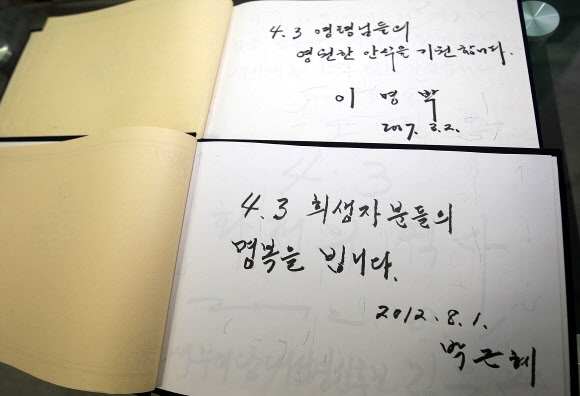 4.3 영령님들의
영원한 안식을 기원합니다.
이 명 박
2007. 2.2.
4.3 희생자분들의
명복을 빕니다.
2012.8.1.
박근혜